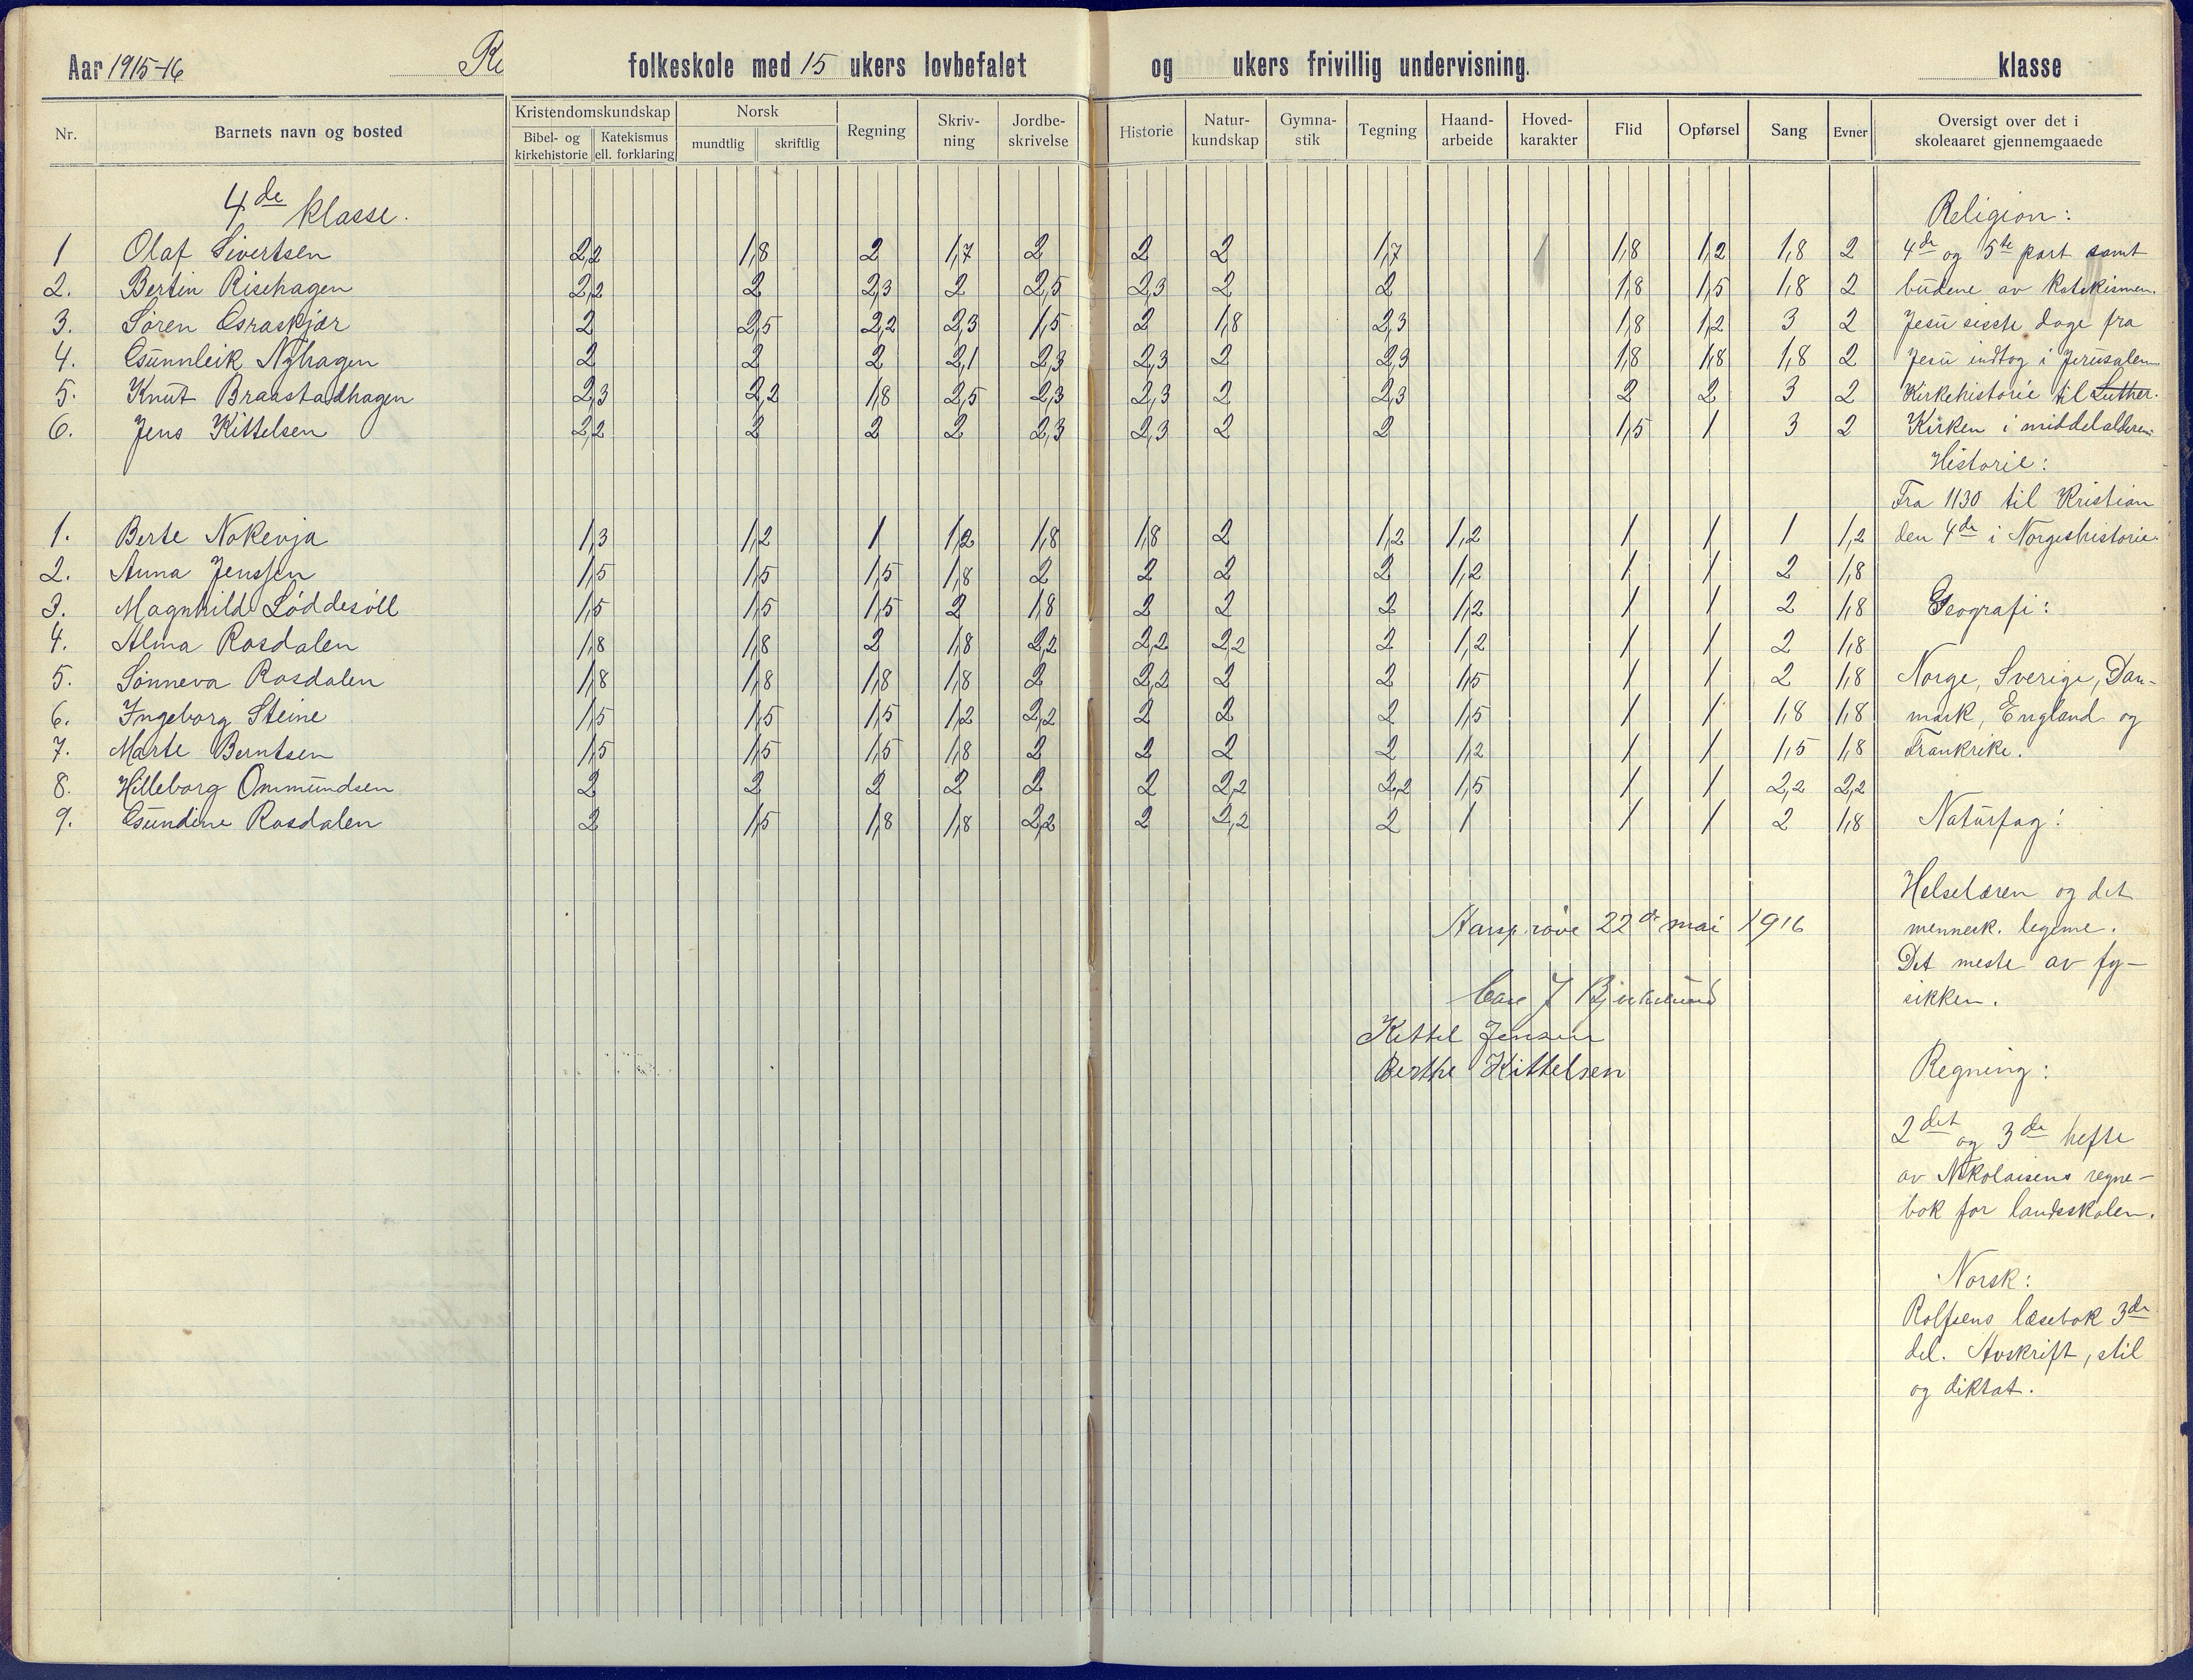 Aar 1915-16 folkeskole med 15 ukers lovbefalet og ukers frivillig undervisning. klasse
Nr. Barnets navn og bosted Kristendomskundskap Bibel- og kirkehistorie Katekismus ell. forklaring Norsk mundtlig skriftlig Regning Skriv-ning Jordbe-skrivelse Historie Natur-kundskap Gymna-stik Tegning Haand-arbeide Hoved-karakter Flid Opførsel Sang Evner Oversigt over det i skoleaaret gjennemgaaede
4de klasse.
1 Olaf Sivertsen 2,2 1,8 2 1,7 2 2 2 1,7 1,8 1,2 1,8 2
2. Bertin Risehagen 2,2 2 2,3 2 2,5 2,3 2 2 1,8 1,5 1,8 2
3. Søren 2 2,5 2,2 2,3 1,5 2 1,8 2,3 1,8 1,2 3 2
4. Nyhagen 2 2 2 2,1 2,3 2,3 2 2,3 1,8 1,8 1,8 2
5. Knut Braastadhagen 2,3 2,2 1,8 2,5 2,3 2,3 2 2,3 2 2 3 2
6. Jens Kittelsen 2,2 2 2 2 2,3 2,3 2 2 1,5 1 3 2
1. Berte Nokevja 1,3 1,2 1 1,2 1,8 1,8 2 1,2 1,2 1 1 1 1,2
2. Anna Jenssen 1,5 1,5 1,5 1,8 2 2 2 2 1,2 1 1 2 1,8
3. Magnhild Løddesøll 1,5 1,5 1,5 2 1,8 2 2 2 1,2 1 1 2 1,8
4. Alma Rosdalen 1,8 1,8 2 1,8 2,2 2,2 2,2 2 1,2 1 1 2 1,8
5. Sønneva Rosdalen 1,8 1,8 1,8 1,8 2 2,2 2 2 1,5 1 1 2 1,8
6. Ingeborg Steine 1,5 1,5 1,5 1,2 2,2 2 2 2 1,5 1 1 1,8 1,8
7. Marte Berntsen 1,5 1,5 1,5 1,8 2 2 2 2 1,2 1 1 1,5 1,8
8. Hilleborg Ommundsen 2 2 2 2 2 2 2,2 2,2 1,5 1 1 2,2 2,2
9. Rosdalen 2 1,5 1,8 1,8 2,2 2 2,2 2 1 1 1 2 1,8
Aarsprøve 22de mai 1916
J
Kittel Jensen
Berthe Kittelsen
Religion:
4de og 5te part samt
budene av katekismen.
Jesu sisste dage fra
Jesu indtog i Jerusalem
Kirkehistorie til Luther.
Kirken i middelalderen.
Historie:
Fra 1130 til Kristian
den 4de i Norgeshistorie.
Geografi:
Norge, Sverige, Dan-
mark, England og
Frankrike.
Naturfag:
Helselæren og det
mennesk. legeme.
Det meste av fy-
sikken.
Regning:
2det og 3de hefte
av Nikolaisens regne-
bok for landsskolen.
Norsk:
Rolfsens læsebok 3de
del. Avskrift, stil
og diktat.